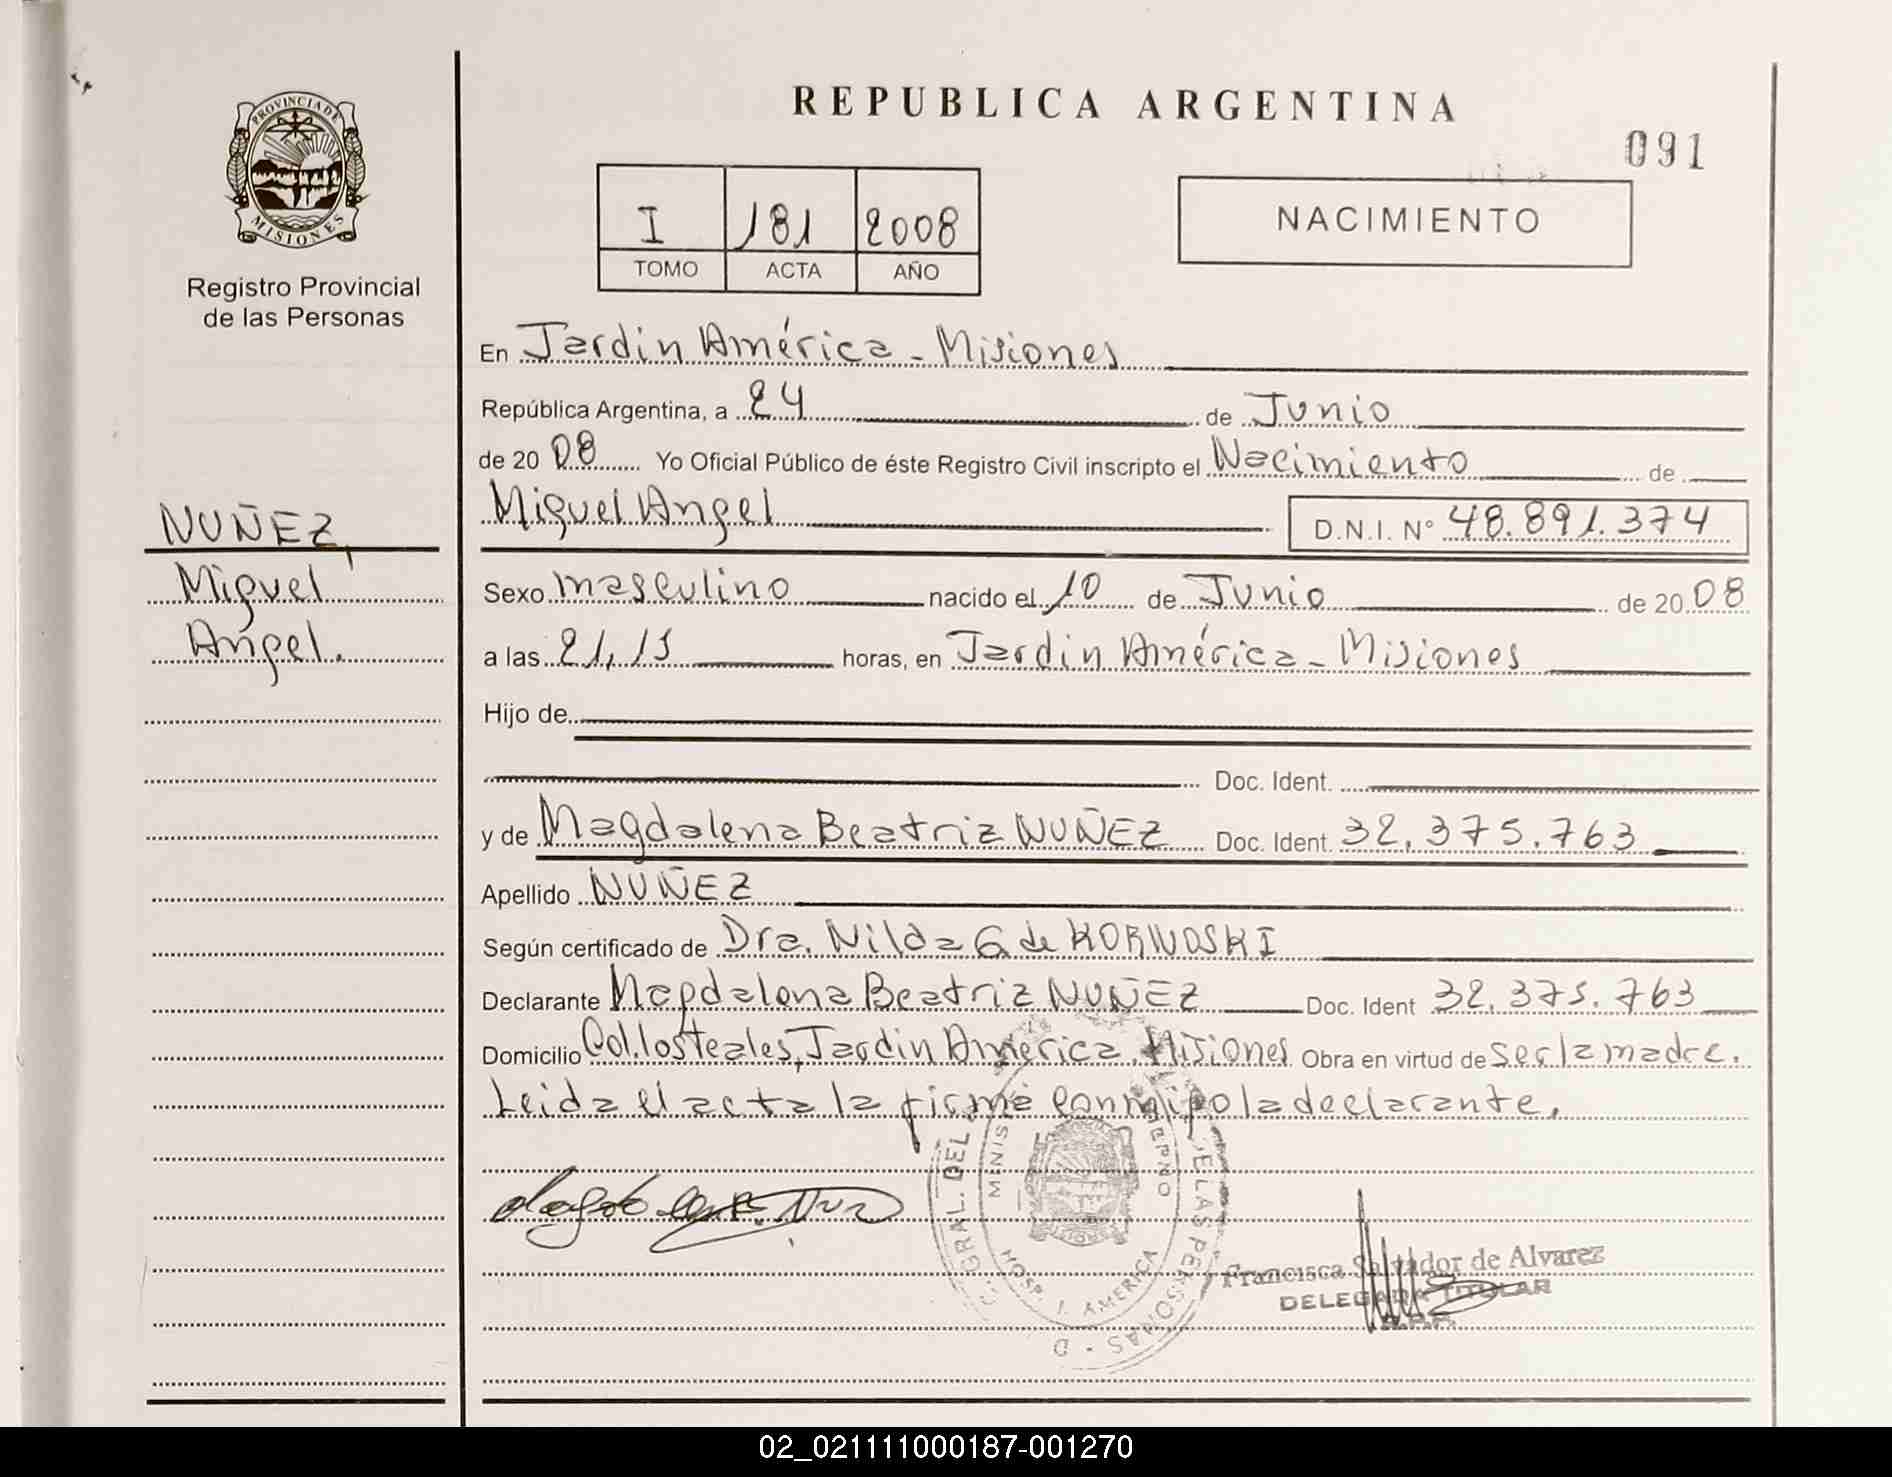 PROVINCIA DE
MISIONES
Registro Provincial
de las Personas
NUÑEZ,
Miguel
Angel.
REPUBLICA ARGENTINA
091
I 181 2008
TOMO ACTA AÑO
NACIMIENTO
En Jardin América - Misiones
República Argentina, a 24 de Junio
de 20 08 Yo Oficial Público de éste Registro Civil inscripto el Nacimiento de
Miguel Angel D.N.I. N° 48.891.374
Sexo masculino nacido el 10 de Junio de 20 08
a las 21,15 horas, en Jardin América - Misiones
Hijo de
Doc. Ident.
y de Magdalena Beatriz NUÑEZ Doc. Ident. 32.375.763
Apellido NUÑEZ
Según certificado de Dra. Nilda G de KORNOSKI
Declarante Magdalena Beatriz NUÑEZ Doc. Ident 32.375.763
Domicilio Col. los Teales, Jardin América, Misiones Obra en virtud de ser la madre.
Leida el acta la firma conmigo la declarante.
GRAL. DEL
MINIS
DE LAS PERSONAS
HOSP. J. AMERICA
MISIONES
Francisca Salvador de Alvarez
DELEGADA TITULAR
R.P.P.
02_021111000187-001270